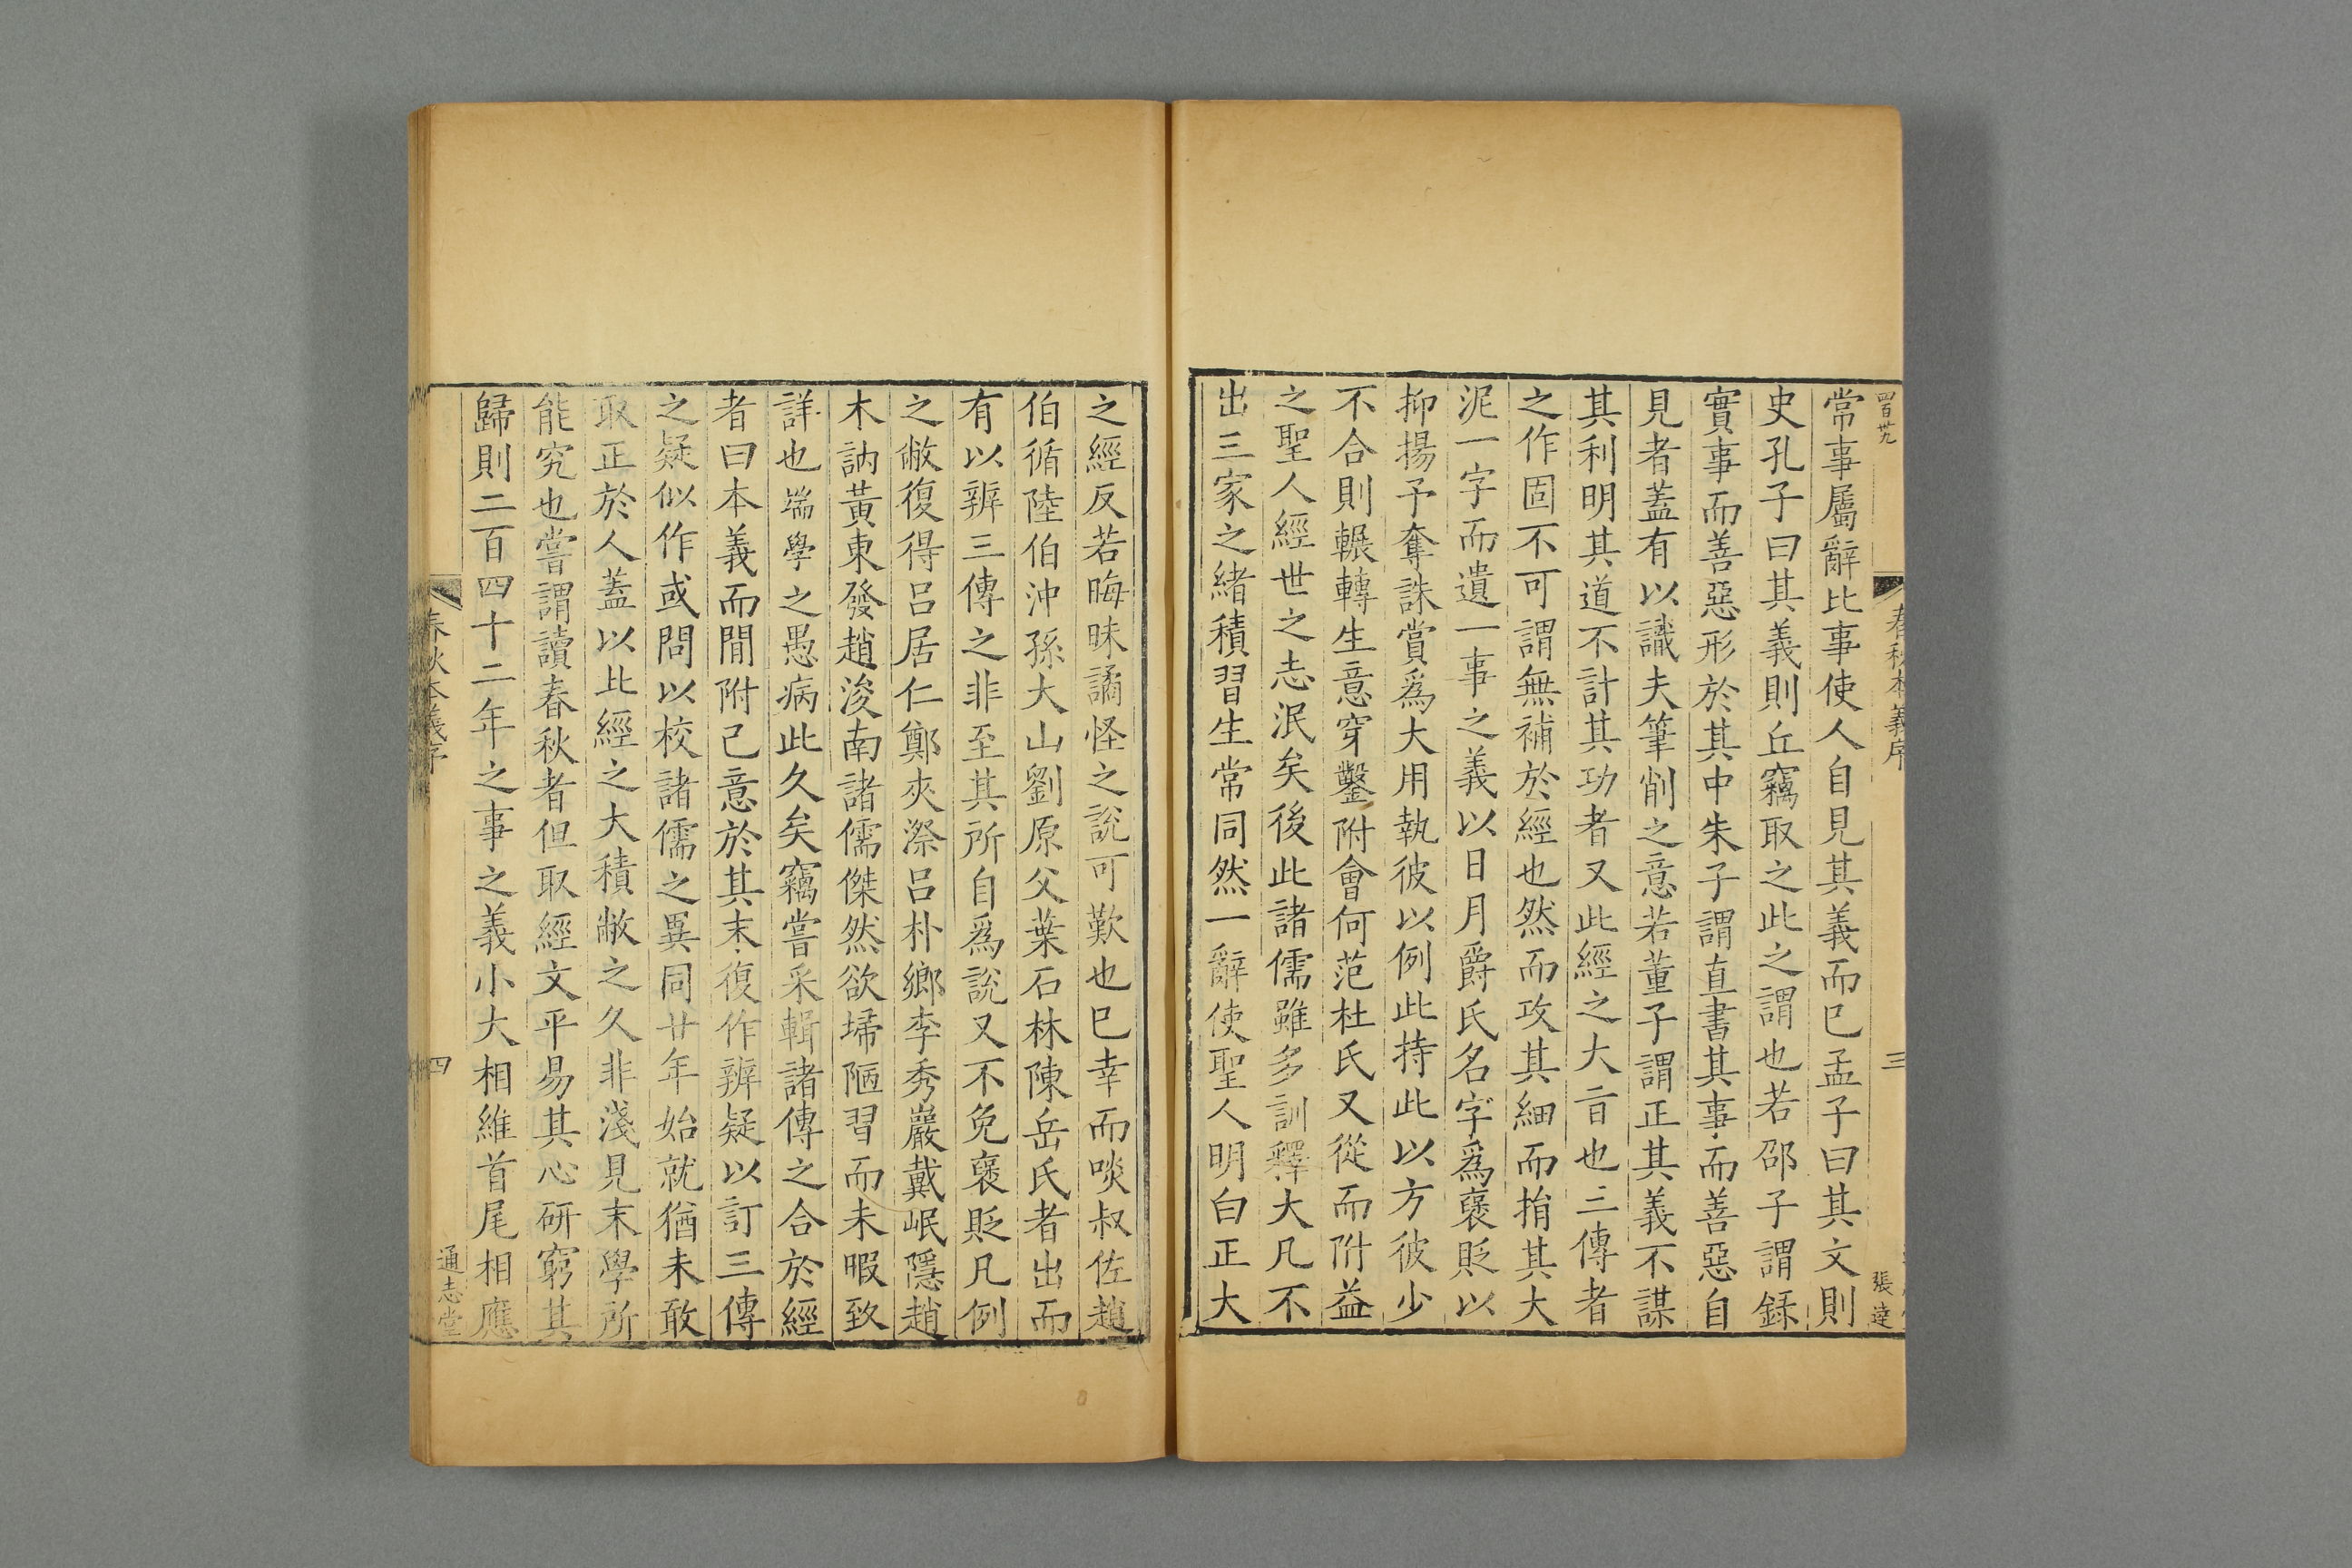 四百廿九
春秋本義序
三
張達
常事屬辭比事使人自見其義而已孟子曰其文則
史孔子曰其義則丘竊取之此之謂也若邵子謂錄
實事而善惡形於其中朱子謂直書其事而善惡自
見者蓋有以識夫筆削之意若董子謂正其義不謀
其利明其道不計其功者又此經之大旨也三傳者
之作固不可謂無補於經也然而攻其細而捐其大
泥一字而遺一事之義以日月爵氏名字爲襃貶以
抑揚予奪誅賞爲大用執彼以例此持此以方彼少
不合則輾轉生意穿鑿附會何范杜氏又從而附益
之聖人經世之志泯矣後此諸儒雖多訓釋大凡不
出三家之緒積習生常同然一辭使聖人明白正大
之經反若晦昧譎怪之說可歎也已幸而啖叔佐趙
伯循陸伯沖孫大山劉原父葉石林陳岳氏者出而
有以辨三傳之非至其所自爲說又不免襃貶凡例
之敝復得呂居仁鄭夾漈呂朴鄉李秀巖戴岷隱趙
木訥黃東發趙浚南諸儒傑然欲埽陋習而未暇致
詳也端學之愚病此久矣竊嘗采輯諸傳之合於經
者曰本義而閒附己意於其末復作辨疑以訂三傳
之疑似作或問以校諸儒之異同廿年始就猶未敢
取正於人蓋以此經之大積敝之久非淺見末學所
能究也嘗謂讀春秋者但取經文平易其心研窮其
歸則二百四十二年之事之義小大相維首尾相應
春秋本義序
四
通志堂